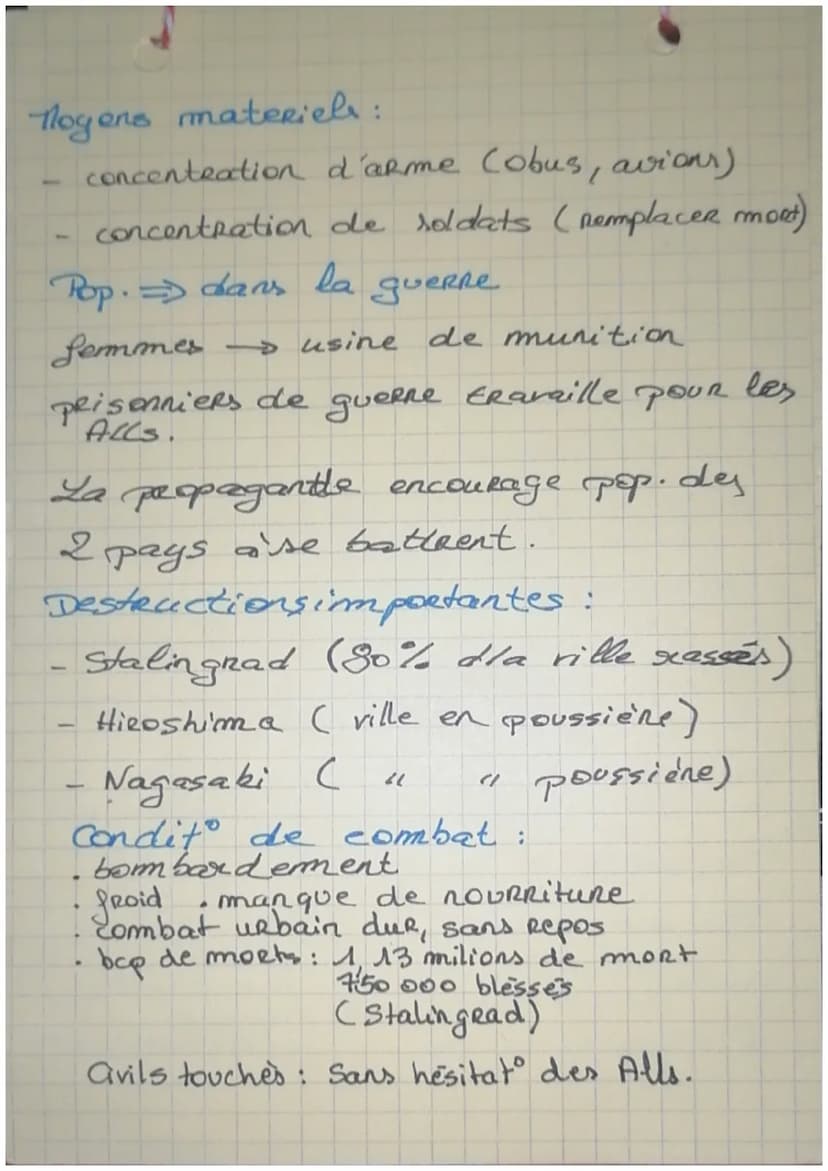 Moyens materiels :
- concentration d'arme (obus, avions)
- concentration de soldats (remplacer mort)
Pop. ⇒ dans la guerre
femmes → usine de munition
prisonniers de guerre travaille pour les
Alls.
La propagande encourage pop. des
2 pays à se battrent.
Destructions importantes :
- Stalingrad (80% d/la ville
- Hiroshima (ville en poussière)
- Nagasaki ( " " poussière)
Condit° de combat :
. bombardement
. froid . manque de nourriture
. combat urbain dur, sans repos
. bcp de morts : 1,13 milions de mort
750 000 blessés
(Stalingrad)
Civils touchés : Sans hésitat° des Alls.